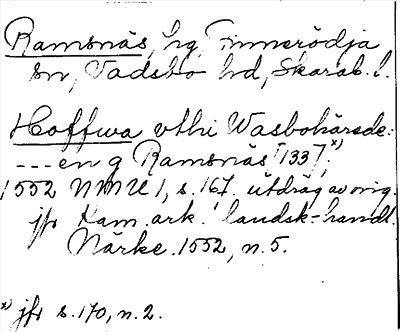 Ramsnäs, hg, Finnerödja
sn, Vadsbo hd, Skarab. l.
Hoffwa vthi Wasbohärede:
--- en g Ramsnäs [133].x)
1552 NMU 1, s. 167. utdrag av orig.
jfr Kam. ark. landsk-handl.
Närke 1552, n. 5.
x) jfr s. 170, n. 2.